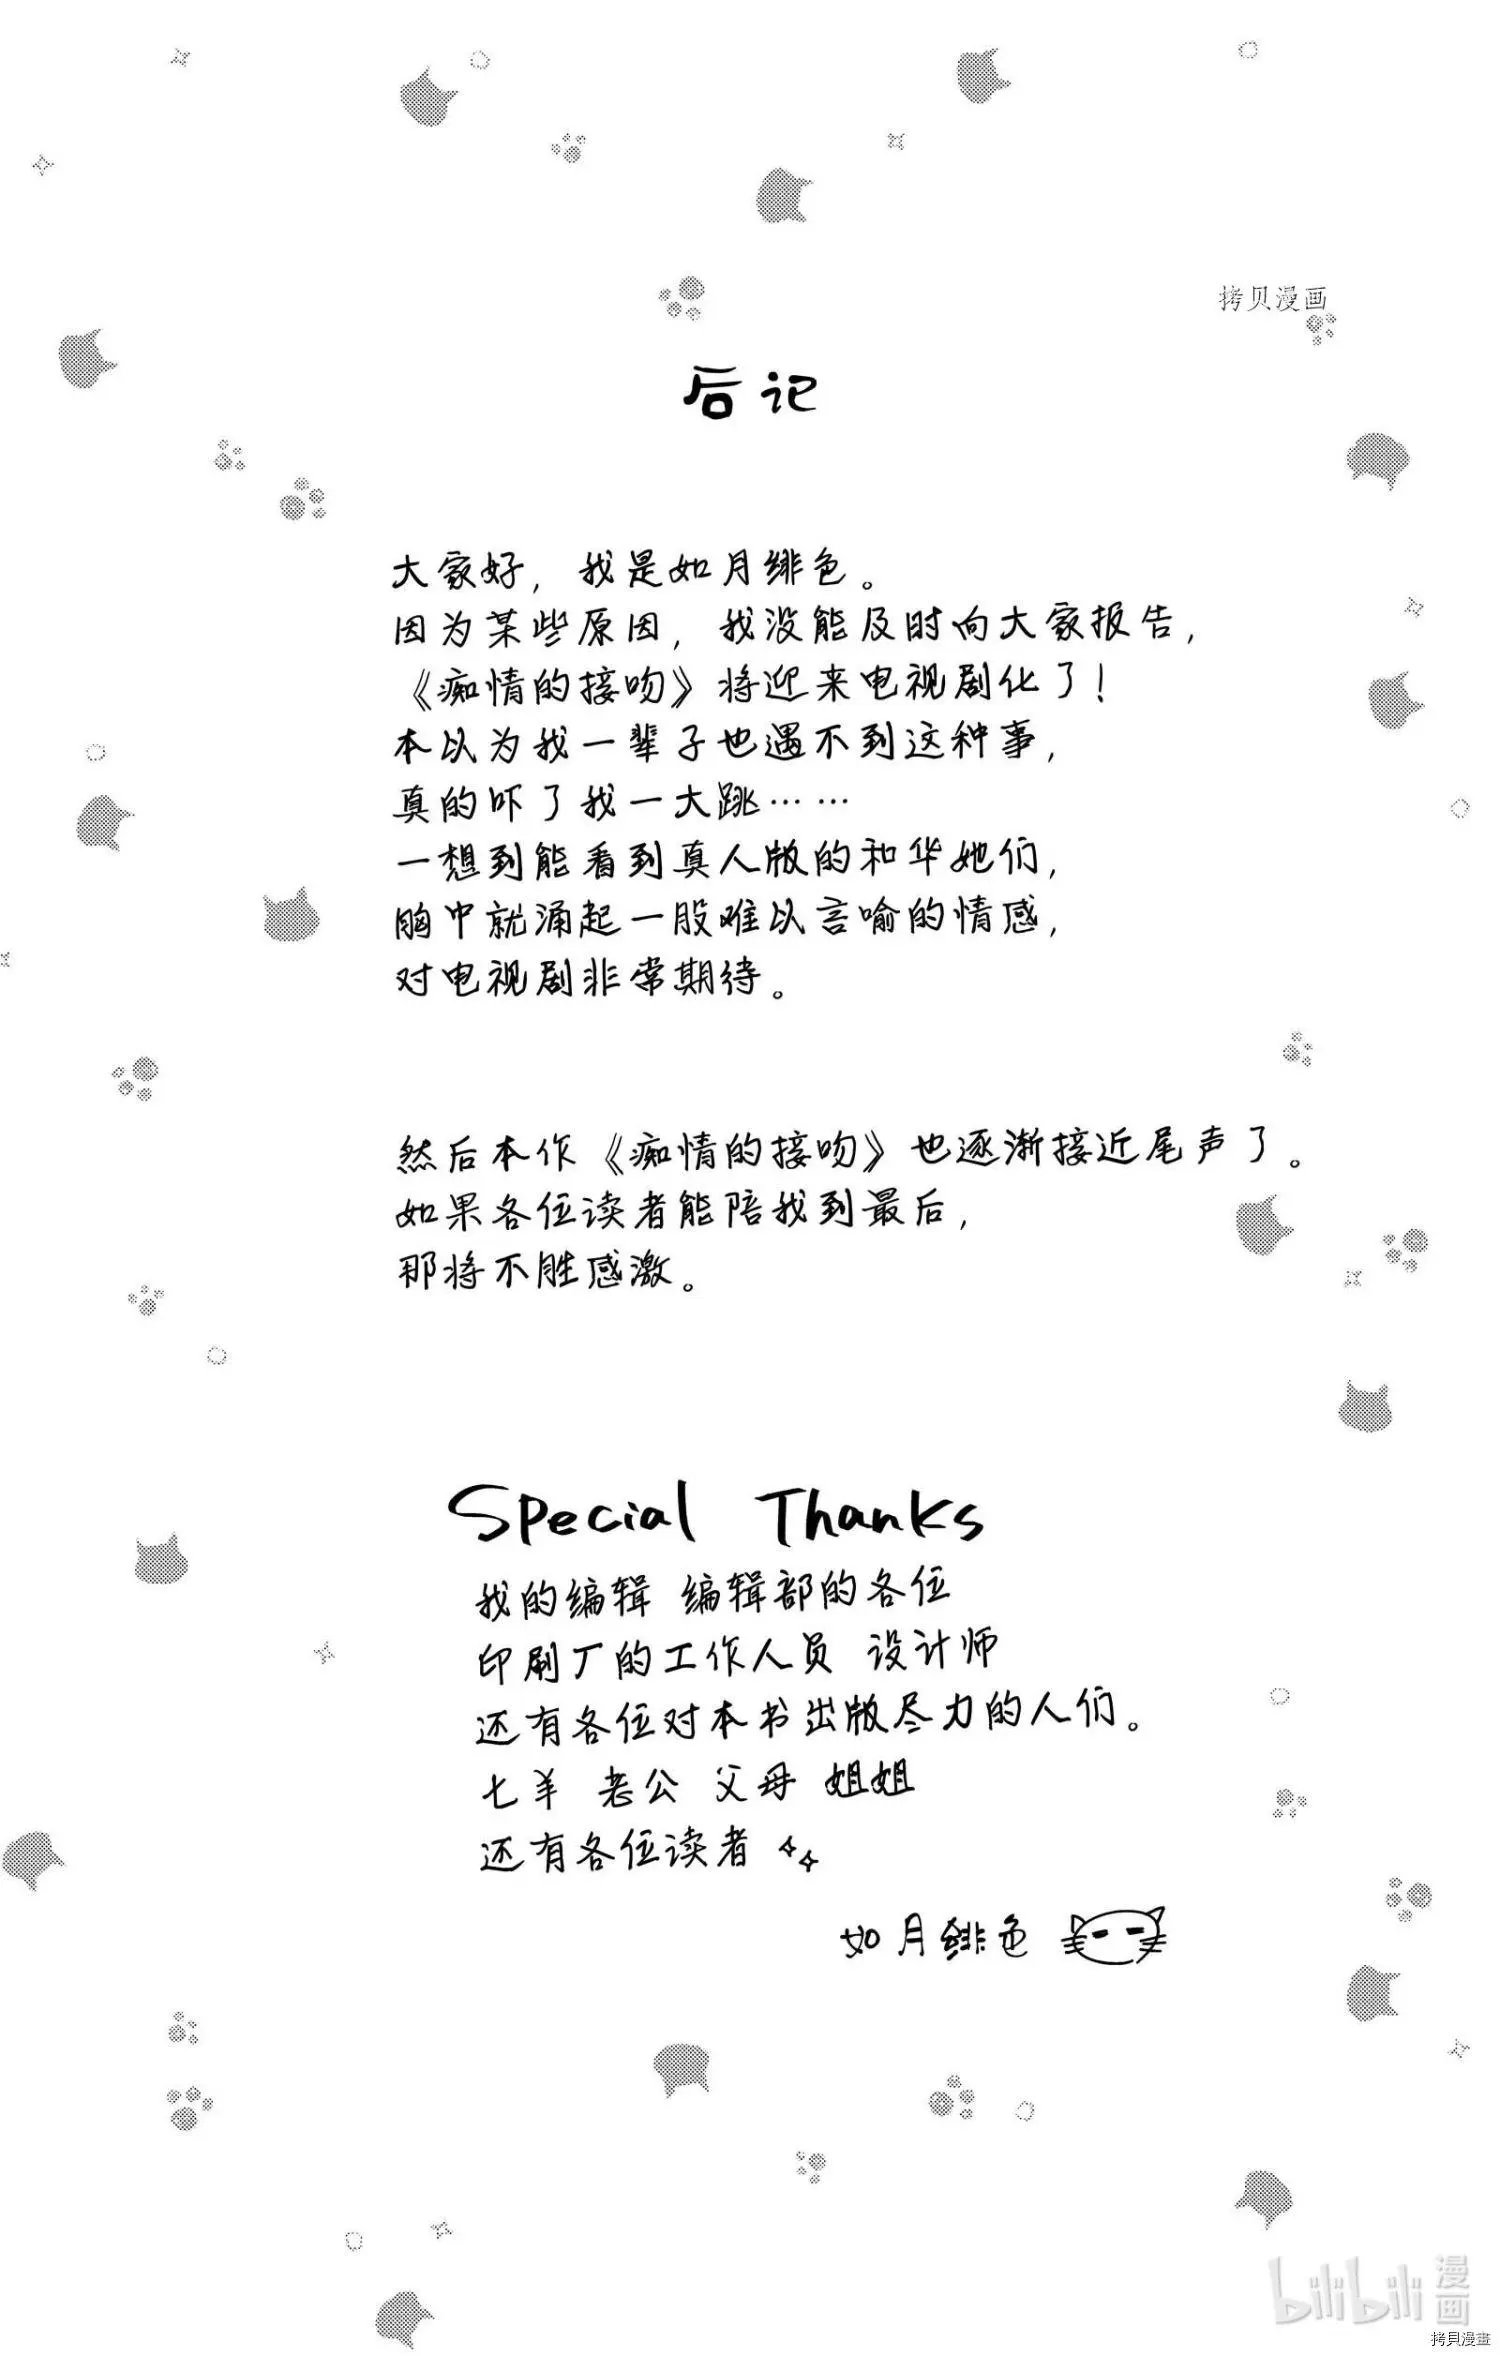 拷贝漫画
后记
大家好，我是如月绯色。
因为某些原因，我没能及时向大家报告，
《痴情的接吻》将迎来电视剧化了！
本以为我一辈子也遇不到这种事，
真的吓了我一大跳……
一想到能看到真人版的和华她们，
胸中就涌起一股难以言喻的情感，
对电视剧非常期待。
然后本作《痴情的接吻》也逐渐接近尾声了。
如果各位读者能陪我到最后，
那将不胜感激。
Special Thanks
我的编辑 编辑部的各位
印刷厂的工作人员 设计师
还有各位对本书出版尽力的人们。
七羊 老公 父母 姐姐
还有各位读者
如月绯色
bilibili 漫画
拷貝漫畫